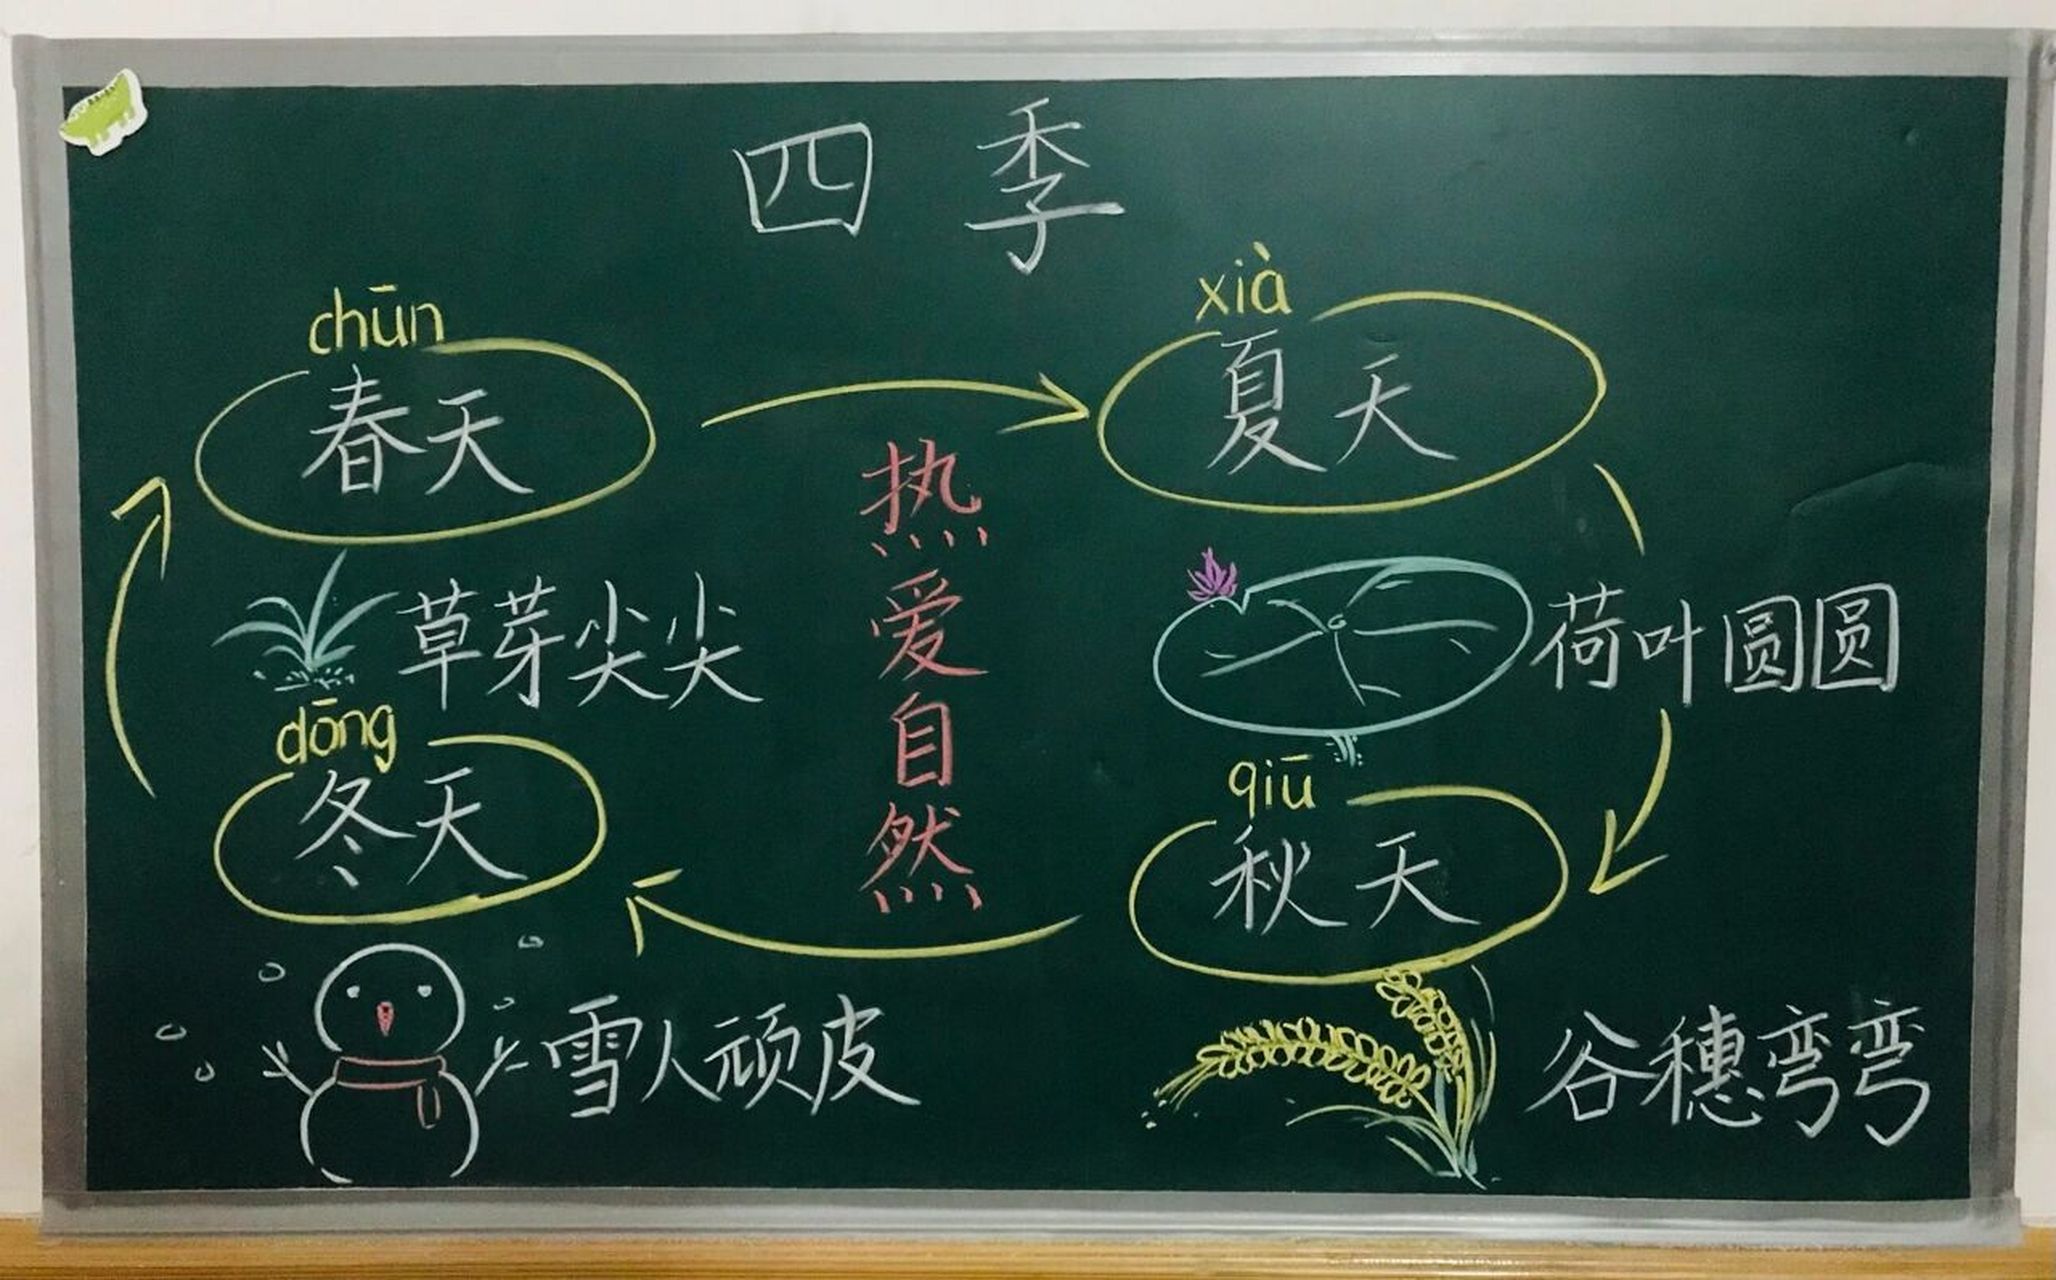 四季
chūn
春天
草芽尖尖
xià
夏天
荷叶圆圆
热爱自然
qiū
秋天
谷穗弯弯
dōng
冬天
雪人顽皮